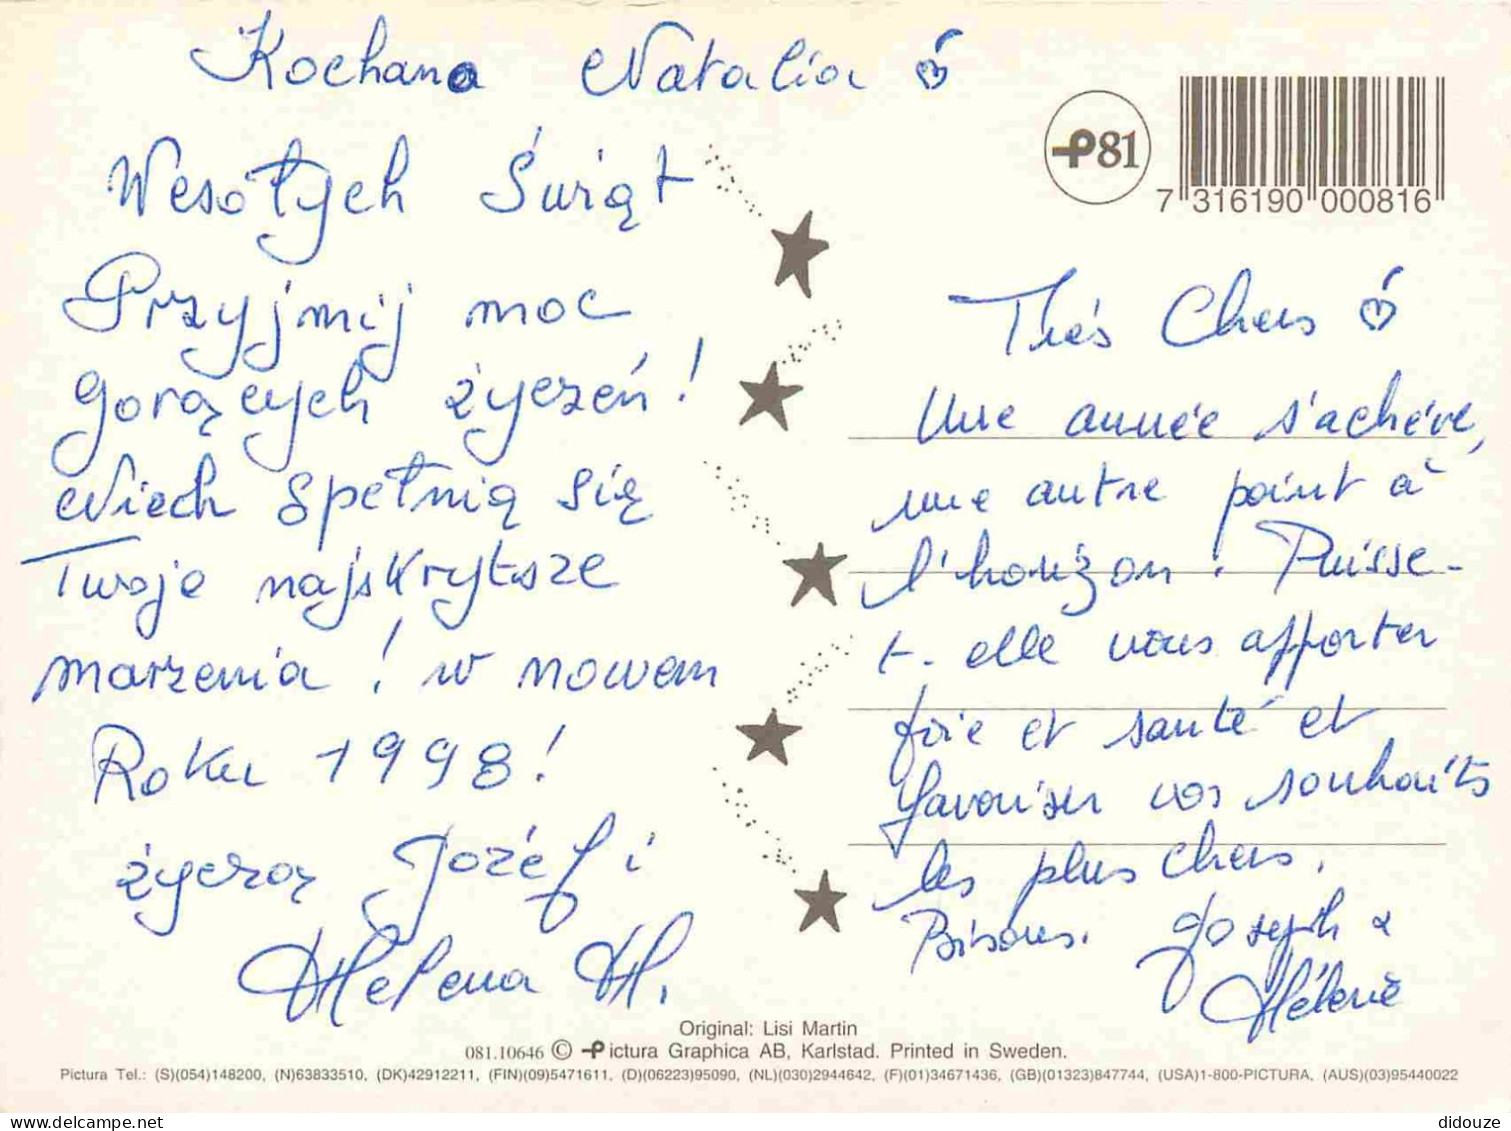 Kochana Natalia
Wesołych Świąt
Przyjmij moc
gorących życzeń!
Niech spełnią się
Twoje najskrytsze
marzenia! w nowem
Roku 1998!
życzą Józef i
Helena H.
P81
7 316190 000816
Très Chers
Une année s'achève,
une autre point à
l'horizon. Puisse-
t-elle vous apporter
joie et santé et
favoriser vos souhaits
les plus chers.
Bisous. Joseph &
Hélène
Original: Lisi Martin
081.10646 © Pictura Graphica AB, Karlstad. Printed in Sweden.
Pictura Tel.: (S)(054)148200, (N)63833510, (DK)42912211, (FIN)(09)5471611, (D)(06223)95090, (NL)(030)2944642, (F)(01)34671436, (GB)(01323)847744, (USA)1-800-PICTURA, (AUS)(03)95440022
delcampe.net
didouze